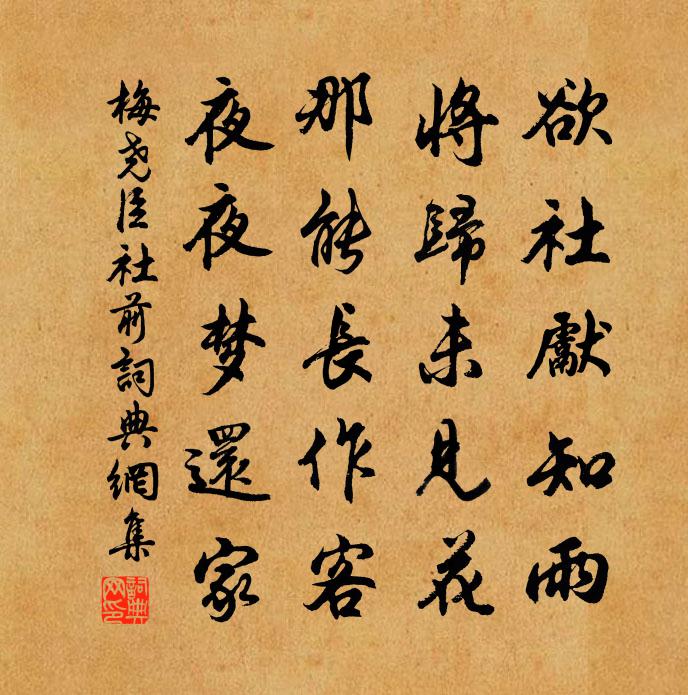 欲社獻知雨
將歸未見花
那能長作客
夜夜梦還家
梅尧臣社前詞典網集
詞典
网印